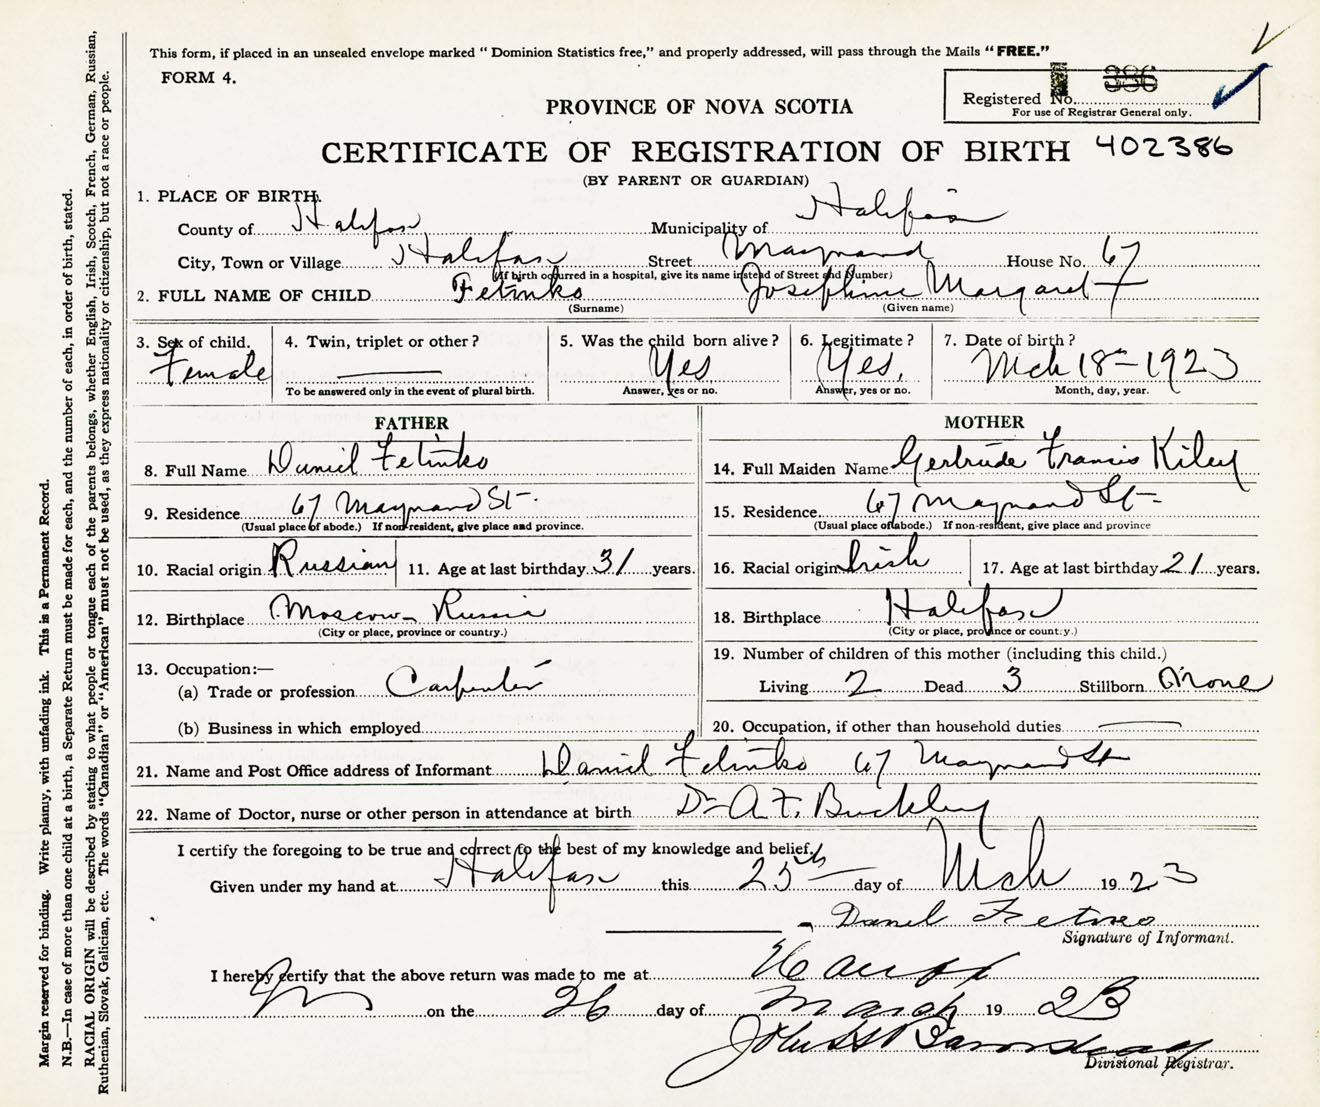 This form, if placed in an unsealed envelope marked “ Dominion Statistics free,” and properly addressed, will pass through the Mails “FREE.”
FORM 4.
386
Registered No.
For use of Registrar General only.
PROVINCE OF NOVA SCOTIA
CERTIFICATE OF REGISTRATION OF BIRTH 402386
(BY PARENT OR GUARDIAN)
1. PLACE OF BIRTH.
County of Halifax Municipality of Halifax
City, Town or Village Halifax Street Maynard House No. 67
(If birth occurred in a hospital, give its name instead of Street and Number)
2. FULL NAME OF CHILD Fetinko Josephine Margaret
(Surname) (Given name)
3. Sex of child. 4. Twin, triplet or other? 5. Was the child born alive? 6. Legitimate? 7. Date of birth?
Female Yes Yes, Mch 18 - 1923
To be answered only in the event of plural birth. Answer, yes or no. Answer, yes or no. Month, day, year.
FATHER MOTHER
8. Full Name Daniel Fetinko 14. Full Maiden Name Gertrude Francis Kiley
9. Residence 67 Maynard St. 15. Residence 67 Maynard St
(Usual place of abode.) If non-resident, give place and province. (Usual place of abode.) If non-resident, give place and province
10. Racial origin Russian 11. Age at last birthday 31 years. 16. Racial origin Irish 17. Age at last birthday 21 years.
12. Birthplace Moscow Russia 18. Birthplace Halifax
(City or place, province or country.) (City or place, province or country.)
13. Occupation:— 19. Number of children of this mother (including this child.)
(a) Trade or profession Carpenter Living 2 Dead 3 Stillborn None
(b) Business in which employed 20. Occupation, if other than household duties
21. Name and Post Office address of Informant Daniel Fetinko 67 Maynard St
22. Name of Doctor, nurse or other person in attendance at birth Dr A. F. Buckley
I certify the foregoing to be true and correct to the best of my knowledge and belief.
Given under my hand at Halifax this 25th day of Mch 1923
Signature of Informant.
I hereby certify that the above return was made to me at
on the 26 day of March 1923
Divisional Registrar.
Margin reserved for binding. Write plainly, with unfading ink. This is a Permanent Record.
N.B.—In case of more than one child at a birth, a Separate Return must be made for each, and the number of each, in order of birth, stated.
RACIAL ORIGIN will be described by stating to what people or tongue each of the parents belongs, whether English, Irish, Scotch, French, German, Russian,
Ruthenian, Slovak, Galician, etc. The words “Canadian” or “American” must not be used, as they express nationality or citizenship, but not a race or people.